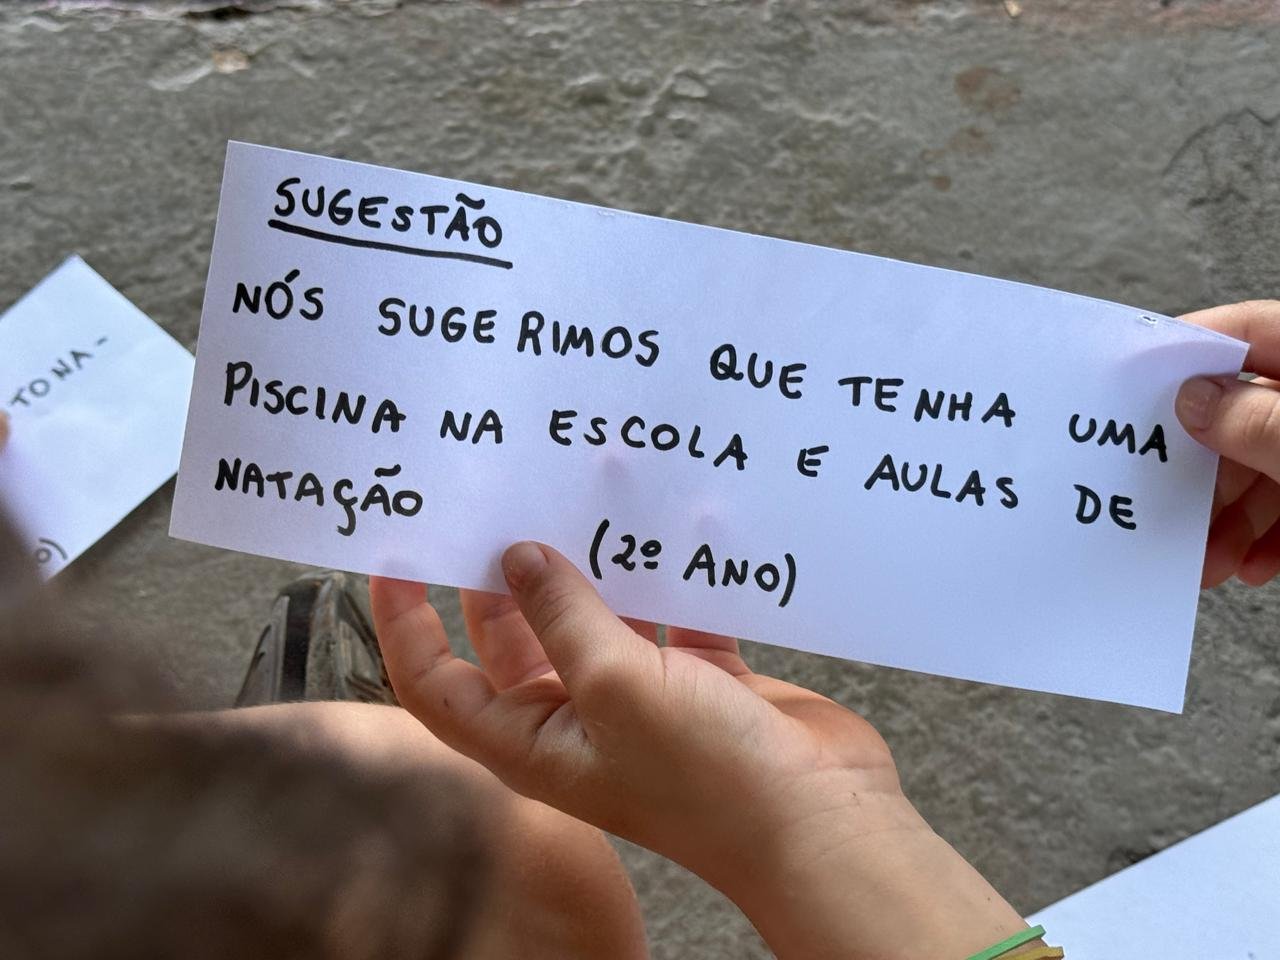 SUGESTÃO
NÓS SUGERIMOS QUE TENHA UMA
PISCINA NA ESCOLA E AULAS DE
NATAÇÃO
(2º ANO)
TONA-